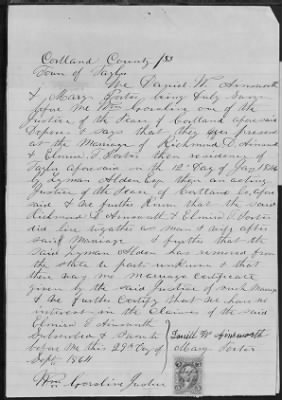 Cortland County } ss
Town of Taylor
We Daniel W. Ainsworth
& Mary Porter being duly sworn
before me Wm Goraline one of the
Justice of the Peace of Cortland aforesaid
Depose & says that they were present
at the Marriage of Richmond D. Ainsworth
& Elmira T. Porter then residence of
Taylor aforesaid on the 12th Day of Jany
by Lyman Alden Esq. then an acting
Justice of the Peace of Cortland Co. aforesaid
said & we further know that the said
Richmond D. Ainsworth & Elmira T. Porter
did live together as man & wife after
said Marriage & further that the
said Lyman Alden has removed from
the State to part unknown & that
there was no marriage certificate
given by the said Justice of such Marriage
& we further Certify that we have no
interest in the Claims of the said
Elmira T. Ainsworth
Subscribed & Sworn to
before me this 29th Day of
Sept. 1864
Daniel W Ainsworth
Mary Porter
Wm Goraline Justice